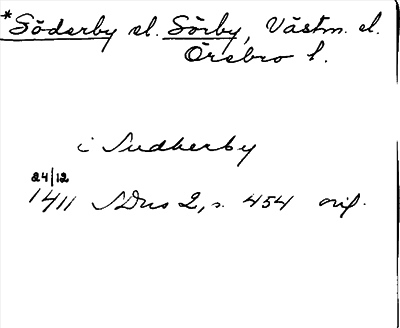 *Söderby el. Sörby, Västm. el.
Örebro l.
i Sudherby
24/12
1411 SDns 2, s. 454 orig.